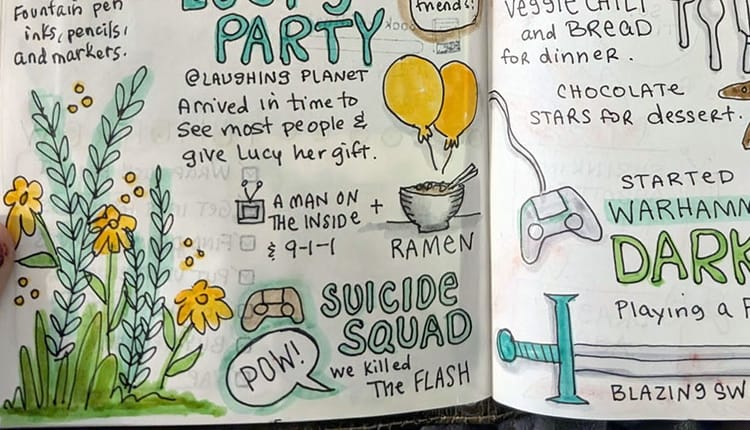 Fountain pen
inks, pencils,
and markers.
PARTY
@LAUGHING PLANET
Arrived in time to
see most people &
give Lucy her gift.
A MAN ON
THE INSIDE +
& 9-1-1
RAMEN
SUICIDE
SQUAD
POW!
we killed
The FLASH
friends!
veggie CHILI
and BREAD
for dinner.
CHOCOLATE
STARS for dessert.
STARTED
WARHAMM
DARK
Playing a
BLAZING SW